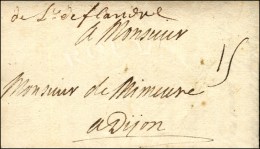 de Lle de flandre
a Monsieur
15
Monsieur de Mimeure
a Dijon